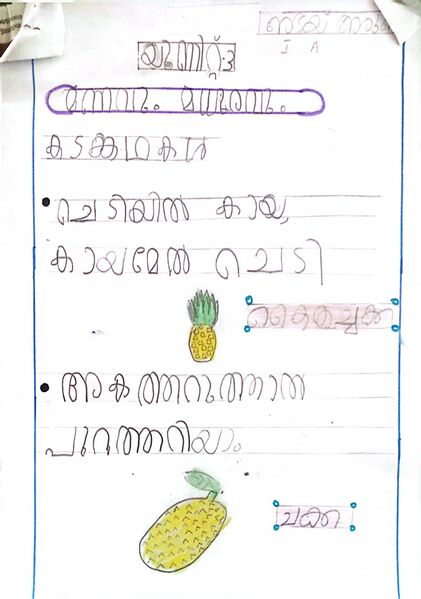 I A
യൂണിറ്റ്:3
മണവും മധുരവും
കടങ്കഥകൾ
• ചെടിയിൽ കായ,
കായമേൽ ചെടി
കൈതച്ചക്ക
• അകത്തറുത്താൽ
പുറത്തറിയാം
ചക്ക